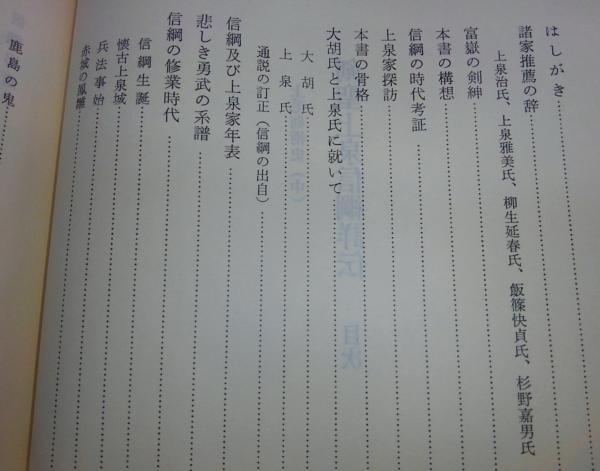 はしがき
諸家推薦の辞
上泉治氏、上泉雅美氏、柳生延春氏、飯篠快貞氏、杉野嘉男氏
富嶽の剣紳
本書の構想
信綱の時代考証
上泉家探訪
本書の骨格
大胡氏と上泉氏に就いて
大胡氏
上泉氏
通説の訂正（信綱の出自）
信綱及び上泉家年表
悲しき勇武の系譜
信綱の修業時代
信綱生誕
懐古上泉城
兵法事始
赤城の鳳雛
鹿島の鬼